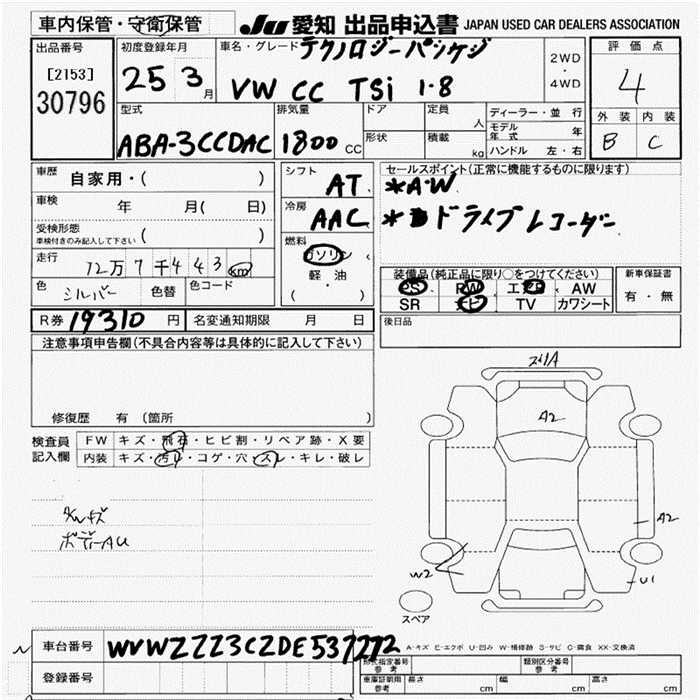 車内保管・守衛保管
JU 愛知 出品申込書 JAPAN USED CAR DEALERS ASSOCIATION
出品番号
[2153]
30796
初度登録年月
25 3月
車名・グレード テクノロジーパッケジ
VW CC TSi 1.8
2WD
・
4WD
評価点
4
外装 内装
B C
型式
ABA-3CCDAC
排気量
1800 CC
ドア
形状
定員 人
積載 kg
ディーラー・並行
モデル年式 年
ハンドル 左・右
車歴
自家用・( )
車検 年 月( 日)
受検形態
車検付きのみ記入して下さい ( )
走行 12万7千443km
色 シルバー 色替 色コード
シフト
AT
冷房
AAC
燃料
ガソリン
軽油
( )
セールスポイント(正常に機能するものに限ります)
*A・W
* ドライブレコーダー
装備品(純正品に限り○をつけてください)
PS PW エアB AW
SR ナビ TV カワシート
新車保証書
有・無
R券 19310円 名変通知期限 月 日
後日品
注意事項申告欄(不具合内容等は具体的に記入して下さい)
修復歴 有 (箇所 )
検査員
記入欄
FW キズ・飛石・ヒビ割・リペア跡・X要
内装 キズ・汚れ・コゲ・穴・スレ・キレ・破レ
ボデーAU
スリA
A2
A2
W2
U1
スペア
A-キズ E-エクボ U-凹み W-補修跡 S-サビ C-腐食 XX-交換済
車台番号 WVWZZZ3CZDE537272
登録番号
型式指定番号
参考
類別区分番号
参考
車庫証明用
参考
長さ cm 幅 cm 高さ cm